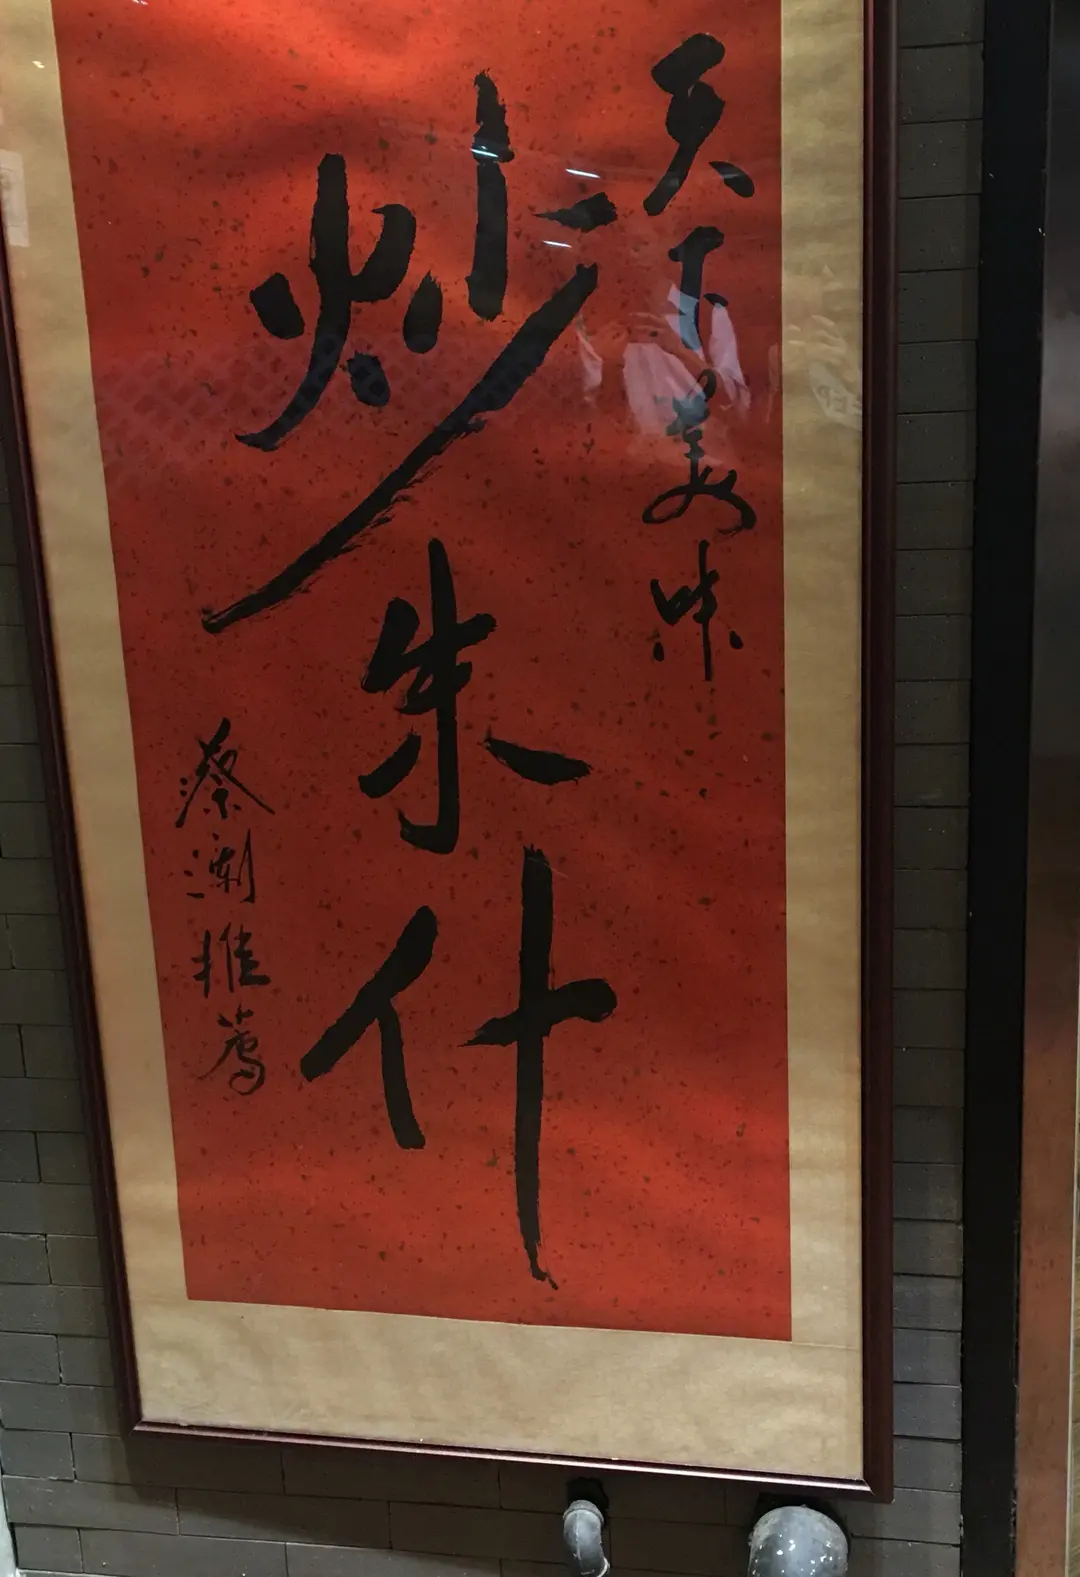 天下美味
炒朱什
蔡瀾推薦